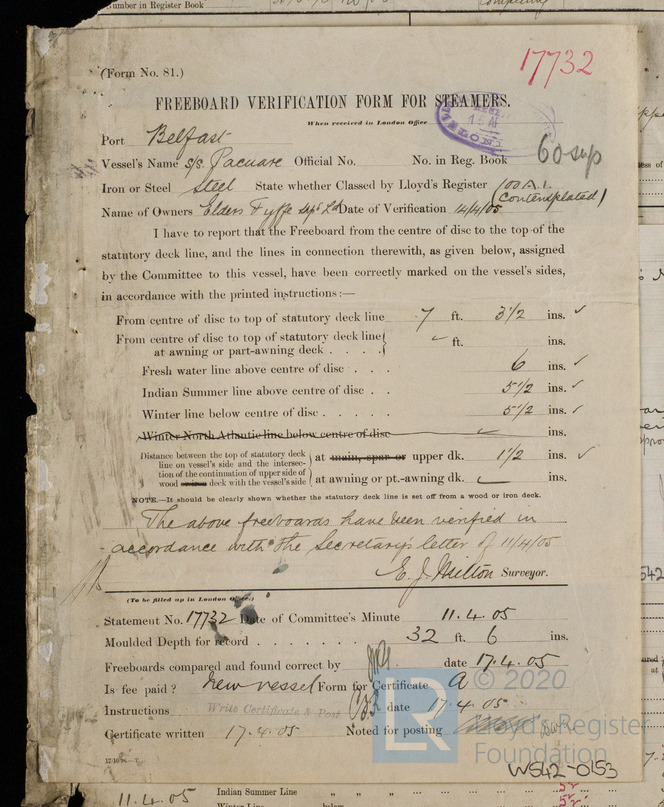 umber in Register Book
17732
(Form No. 81.)
FREEBOARD VERIFICATION FORM FOR STEAMERS.
When received in London Office
Port Belfast
60 sup
Vessel's Name S/S. Pacuare Official No. No. in Reg. Book
Iron or Steel Steel State whether Classed by Lloyd's Register 100 A.1.
(Contemplated)
Name of Owners Elders & Fyffe Ld Date of Verification 14/4/05
I have to report that the Freeboard from the centre of disc to the top of the
statutory deck line, and the lines in connection therewith, as given below, assigned
by the Committee to this vessel, have been correctly marked on the vessel's sides,
in accordance with the printed instructions:—
From centre of disc to top of statutory deck line 7 ft. 3 1/2 ins. ✓
From centre of disc to top of statutory deck line
at awning or part-awning deck . . . . ft. ins.
Fresh water line above centre of disc . . . 6 ins. ✓
Indian Summer line above centre of disc . . 5 1/2 ins. ✓
Winter line below centre of disc . . . . . 5 1/2 ins. ✓
Winter North Atlantic line below centre of disc ins.
Distance between the top of statutory deck
line on vessel's side and the intersec-
tion of the continuation of upper side of
wood or iron deck with the vessel's side
at main, spar or upper dk. 1 1/2 ins. ✓
at awning or pt.-awning dk. ins.
NOTE.—It should be clearly shown whether the statutory deck line is set off from a wood or iron deck.
The above freeboards have been verified in
accordance with the Secretary's letter of 11/4/05
E. J. Milton Surveyor.
(To be filled up in London Office.)
Statement No. 17732 Date of Committee's Minute 11.4.05
Moulded Depth for record . . . . . . . 32 ft. 6 ins.
Freeboards compared and found correct by date 17.4.05
Is fee paid? New vessel Form for Certificate A
Instructions Write Certificate & Post date 17.4.05
Certificate written 17.4.05 Noted for posting
© 2020
LR
Lloyd's Register
Foundation
W542-0153
11.4.05
Indian Summer Line
Winter Line below